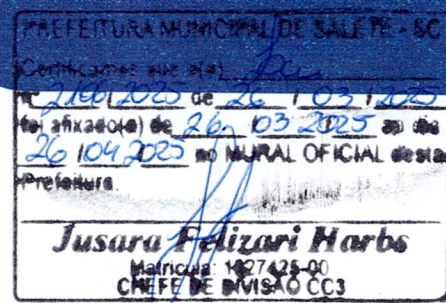 PREFEITURA MUNICIPAL DE SALETE - SC
Certificamos que a(o) Lei
de 26 / 03 / 2025
foi afixado(a) de 26 03 2025 ao dia
26 / 04 / 2025 no MURAL OFICIAL desta
Prefeitura.
Jusara Felizari Harbs
Matrícula: 1427425-00
CHEFE DE DIVISÃO CC3